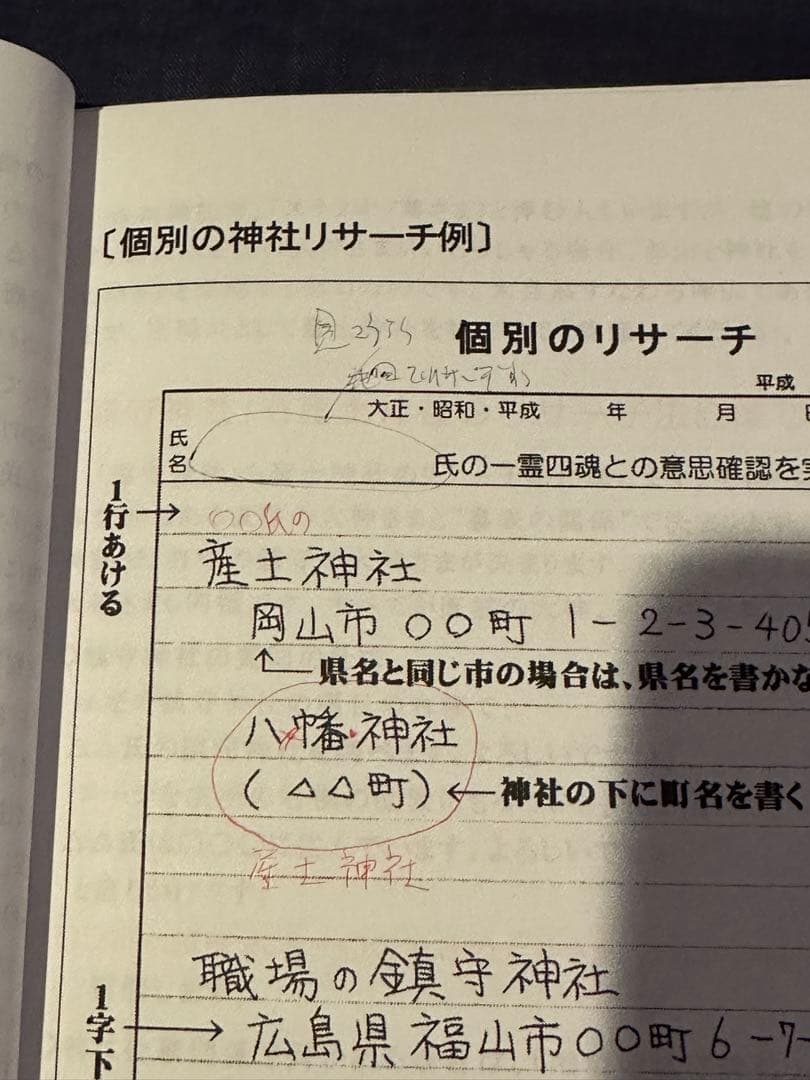 〔個別の神社リサーチ例〕
個別のリサーチ
平成
大正・昭和・平成 年 月
氏名
氏の一霊四魂との意思確認を実
1行あける
〇〇氏の
産土神社
岡山市〇〇町1-2-3-405
県名と同じ市の場合は、県名を書かな
八幡神社
(△△町)
神社の下に町名を書く
産土神社
職場の鎮守神社
1字下
広島県福山市〇〇町6-7-